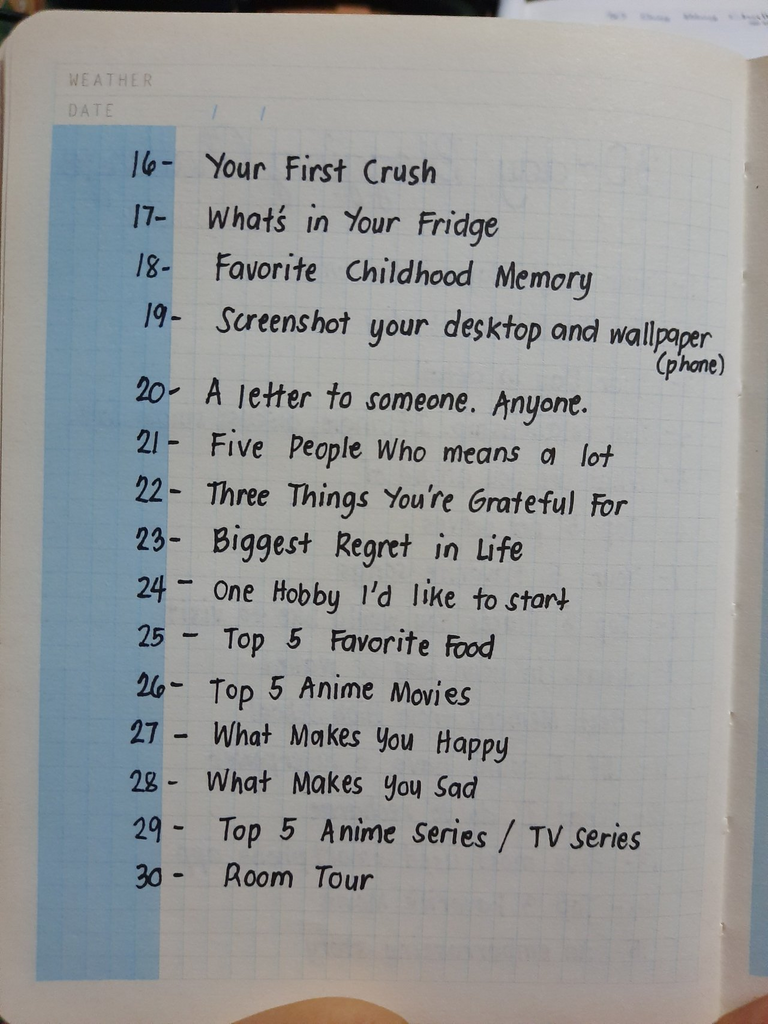 WEATHER
DATE / /
16- Your First Crush
17- What's in Your Fridge
18- Favorite Childhood Memory
19- Screenshot your desktop and wallpaper
(phone)
20- A letter to someone. Anyone.
21- Five People Who means a lot
22- Three Things You're Grateful For
23- Biggest Regret in Life
24- One Hobby I'd like to start
25- Top 5 Favorite Food
26- Top 5 Anime Movies
27- What Makes You Happy
28- What Makes You Sad
29- Top 5 Anime Series / TV Series
30- Room Tour